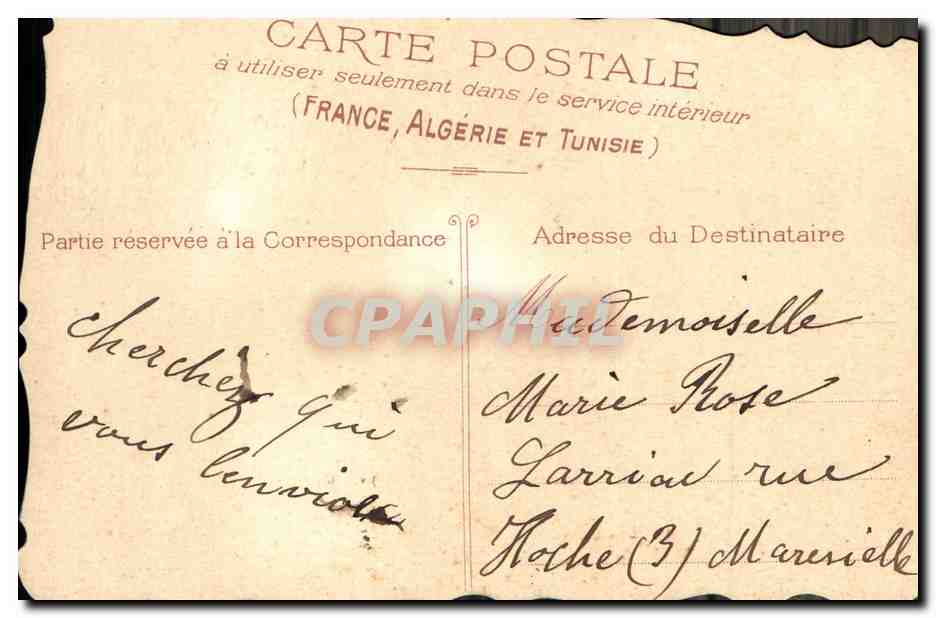 CARTE POSTALE
à utiliser seulement dans le service intérieur
(FRANCE, ALGÉRIE ET TUNISIE)
Partie réservée à la Correspondance
cherchez qui
vous l'envioie
Adresse du Destinataire
Mademoiselle
Marie Rose
Larriau rue
Hoche (3) Mareseille
CPAPHIL